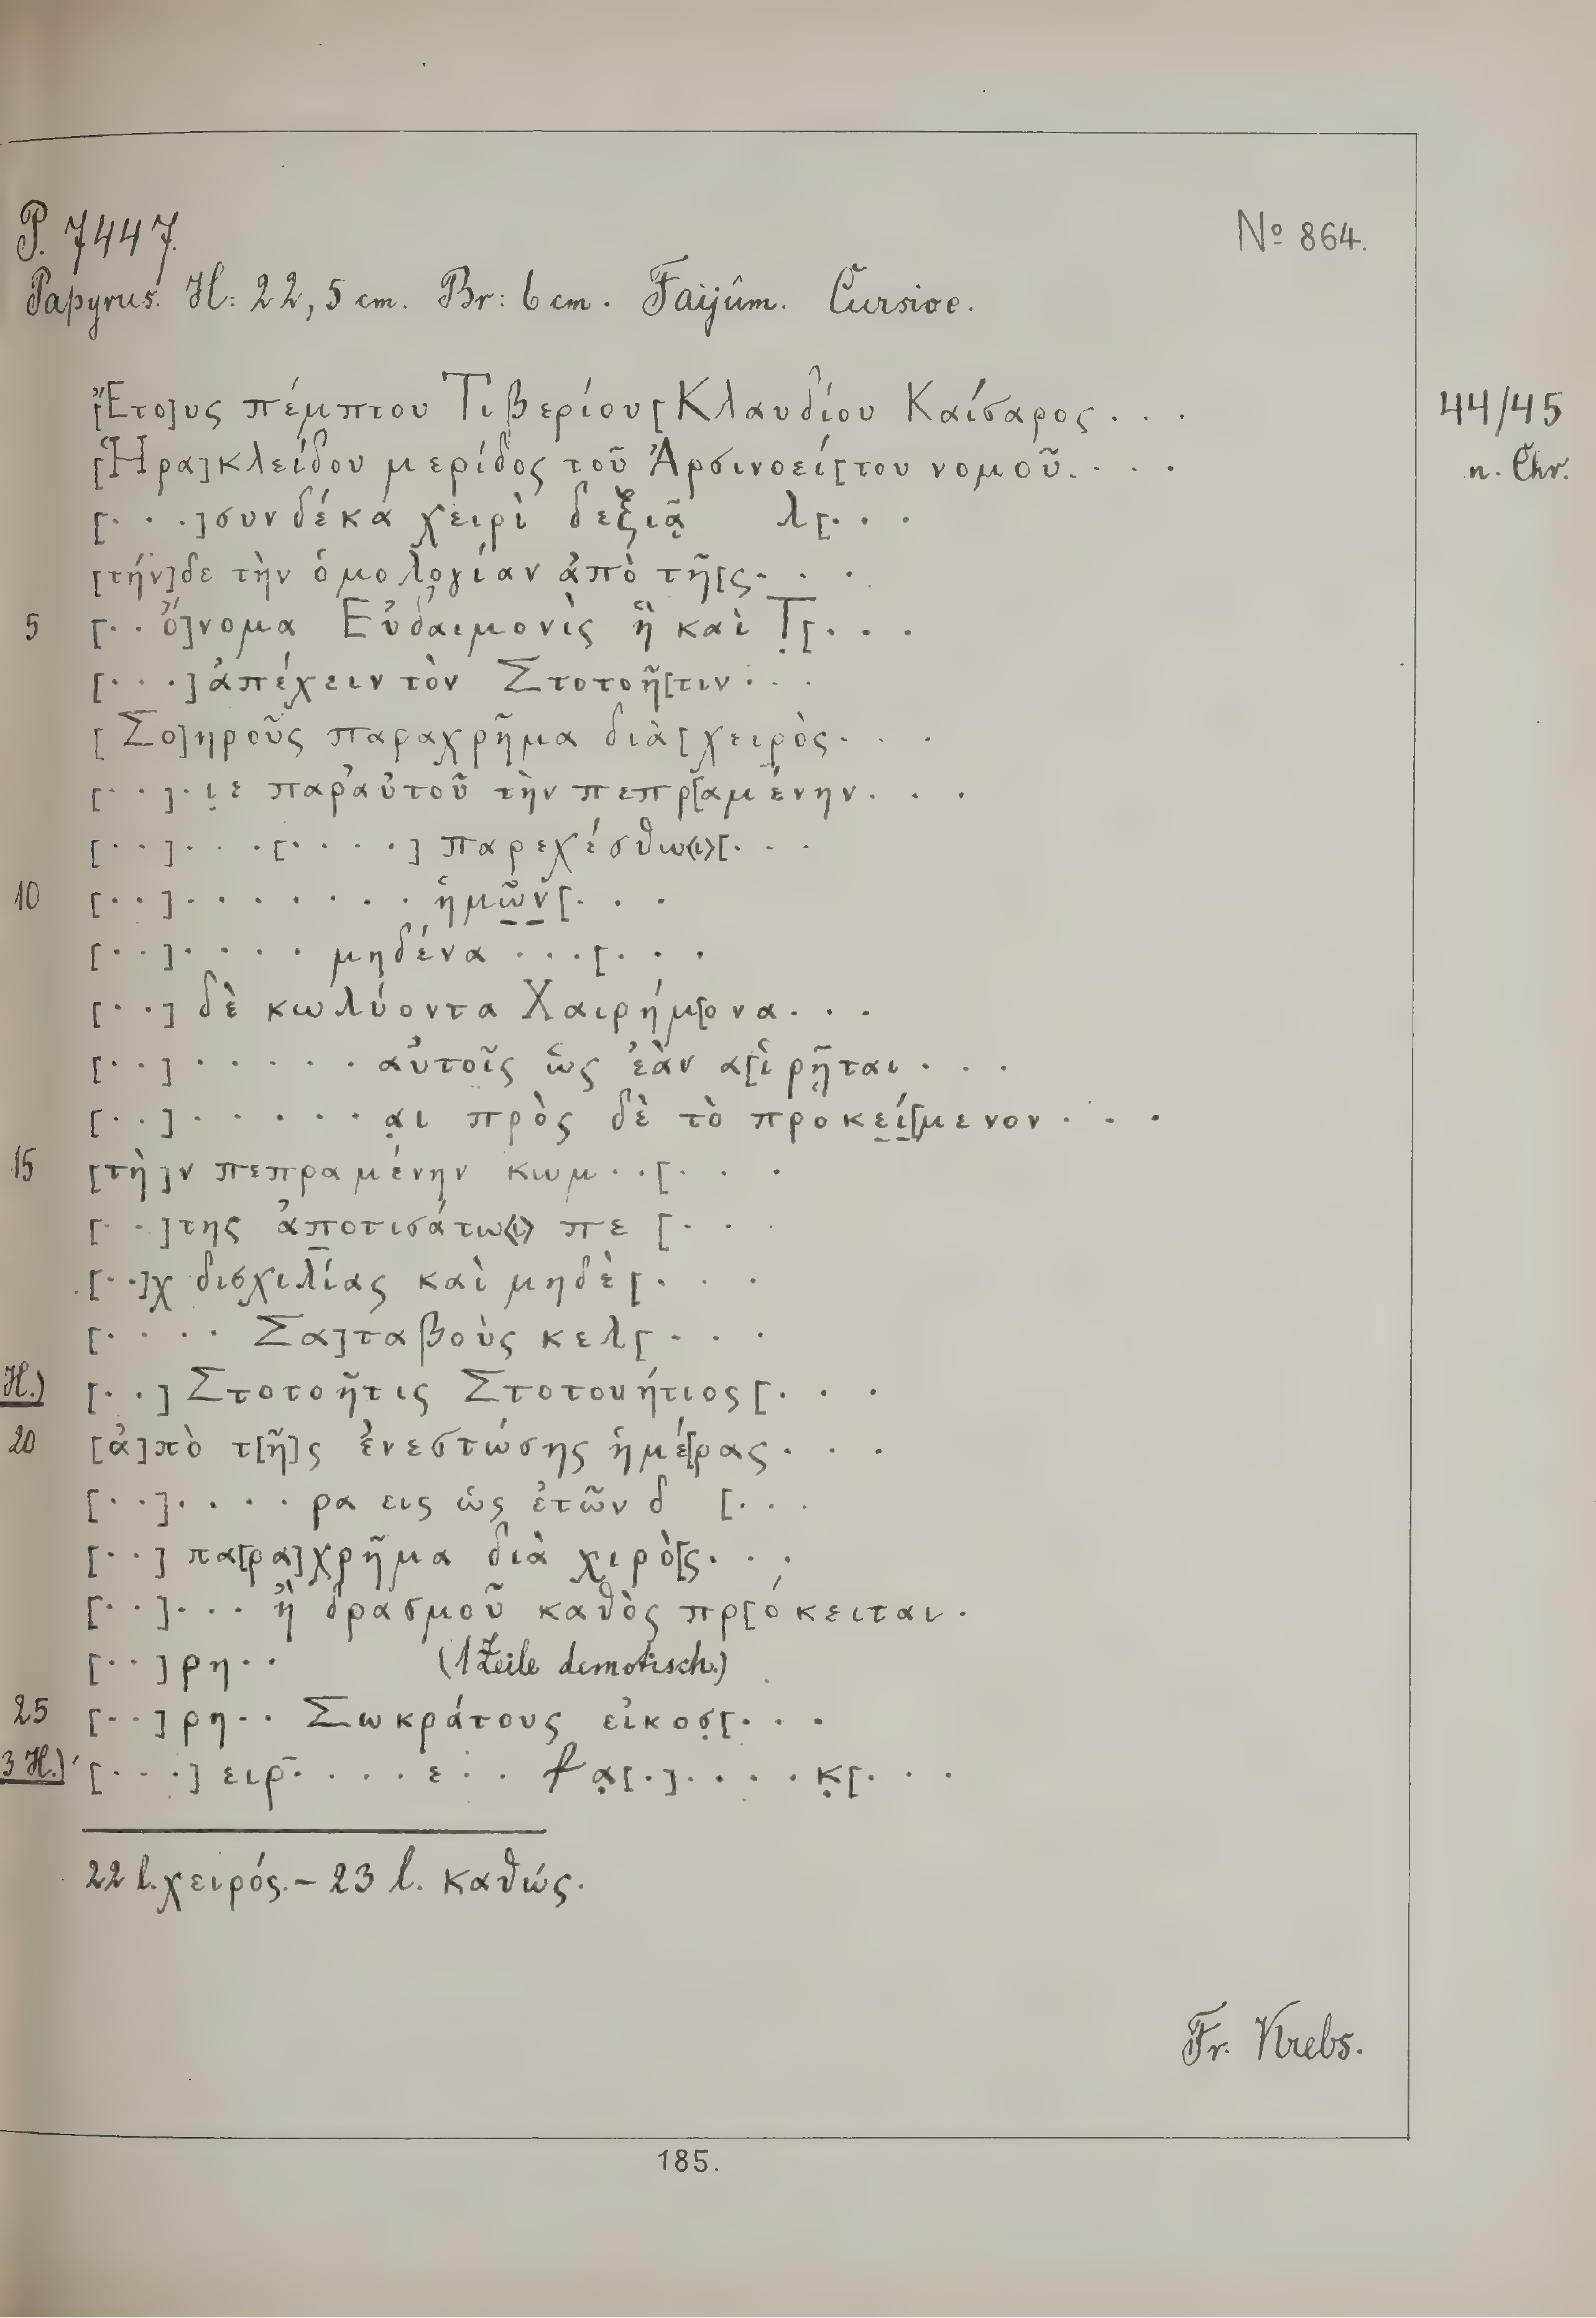 P. 7447.
No 864.
Papyrus. H: 22,5 cm. Br: 6 cm. Faijûm. Cursive.
[Ἔτο]υς πέμπτου Τιβερίου [Κλαυδίου Καίσαρος . . .
44/45
n. Chr.
[Ἡρα]κλείδου μερίδος τοῦ Ἀρσινοεί[του νομοῦ. . . .
[. . .]συν δέκα χειρὶ δεξιᾷ λ[. . .
[τήν]δε τὴν ὁμολογίαν ἀπὸ τῆ[ς. . .
5 [. . ὄ]νομα Εὐδαιμονὶς ἣ καὶ Τ̣[. . .
[. . .] ἀπέχειν τὸν Στοτοῆ[τιν . . .
[Σο]ηροῦς παραχρῆμα διὰ [χειρὸς. . .
[. . ] . ι̣ε παρ' αὐτοῦ τὴν πεπρ[αμένην. . .
[. . ] . . . [. . . . .] παρεχέσθω⟨ι⟩[. . .
10 [. . ] . . . . . . . ἡμῶ̣ν̣ [. . .
[. . ] . . . . μηδένα . . . [. . .
[. . ] δὲ κωλύοντα Χαιρήμ[ονα. . .
[. . ] . . . . . αὐτοῖς ὡς ἐὰν α[ἱρῆται . . .
[. . ] . . . . . . α̣ι πρὸς δὲ τὸ προκε̣ί̣[μενον . . .
15 [τὴ]ν πεπραμένην κωμ . . [. . .
[. . ]της ἀπ̣οτισάτω⟨ι⟩ πε [. . .
[. . ]χ δισχιλίας καὶ μηδὲ [. . .
[. . . . Σα]ταβοὺς κελ[. . .
H.) [. . ] Στοτοῆτις Στοτοήτιος [. . .
20 [ἀ]πὸ τ[ῆ]ς ἐνεστώσης ἡμέ[ρας . . .
[. . ] . . . . ρα εις ὡς ἐτῶν δ [. . .
[. . ] πα[ρα]χρῆμα διὰ χιρὸ[ς. . .
[. . ] . . . ἢ δρασμοῦ καθὸς πρ[όκειται .
[. . ] ρη . . (1 Zeile demotisch.)
25 [. . ] ρη . . Σωκράτους εἰκοσ̣[. . .
3 H.) [. . .] ειρ̄ . . . . ε . . α̣[.] . . . . κ̣[. . .
22 l. χειρός. – 23 l. καθώς.
Fr. Krebs.
185.